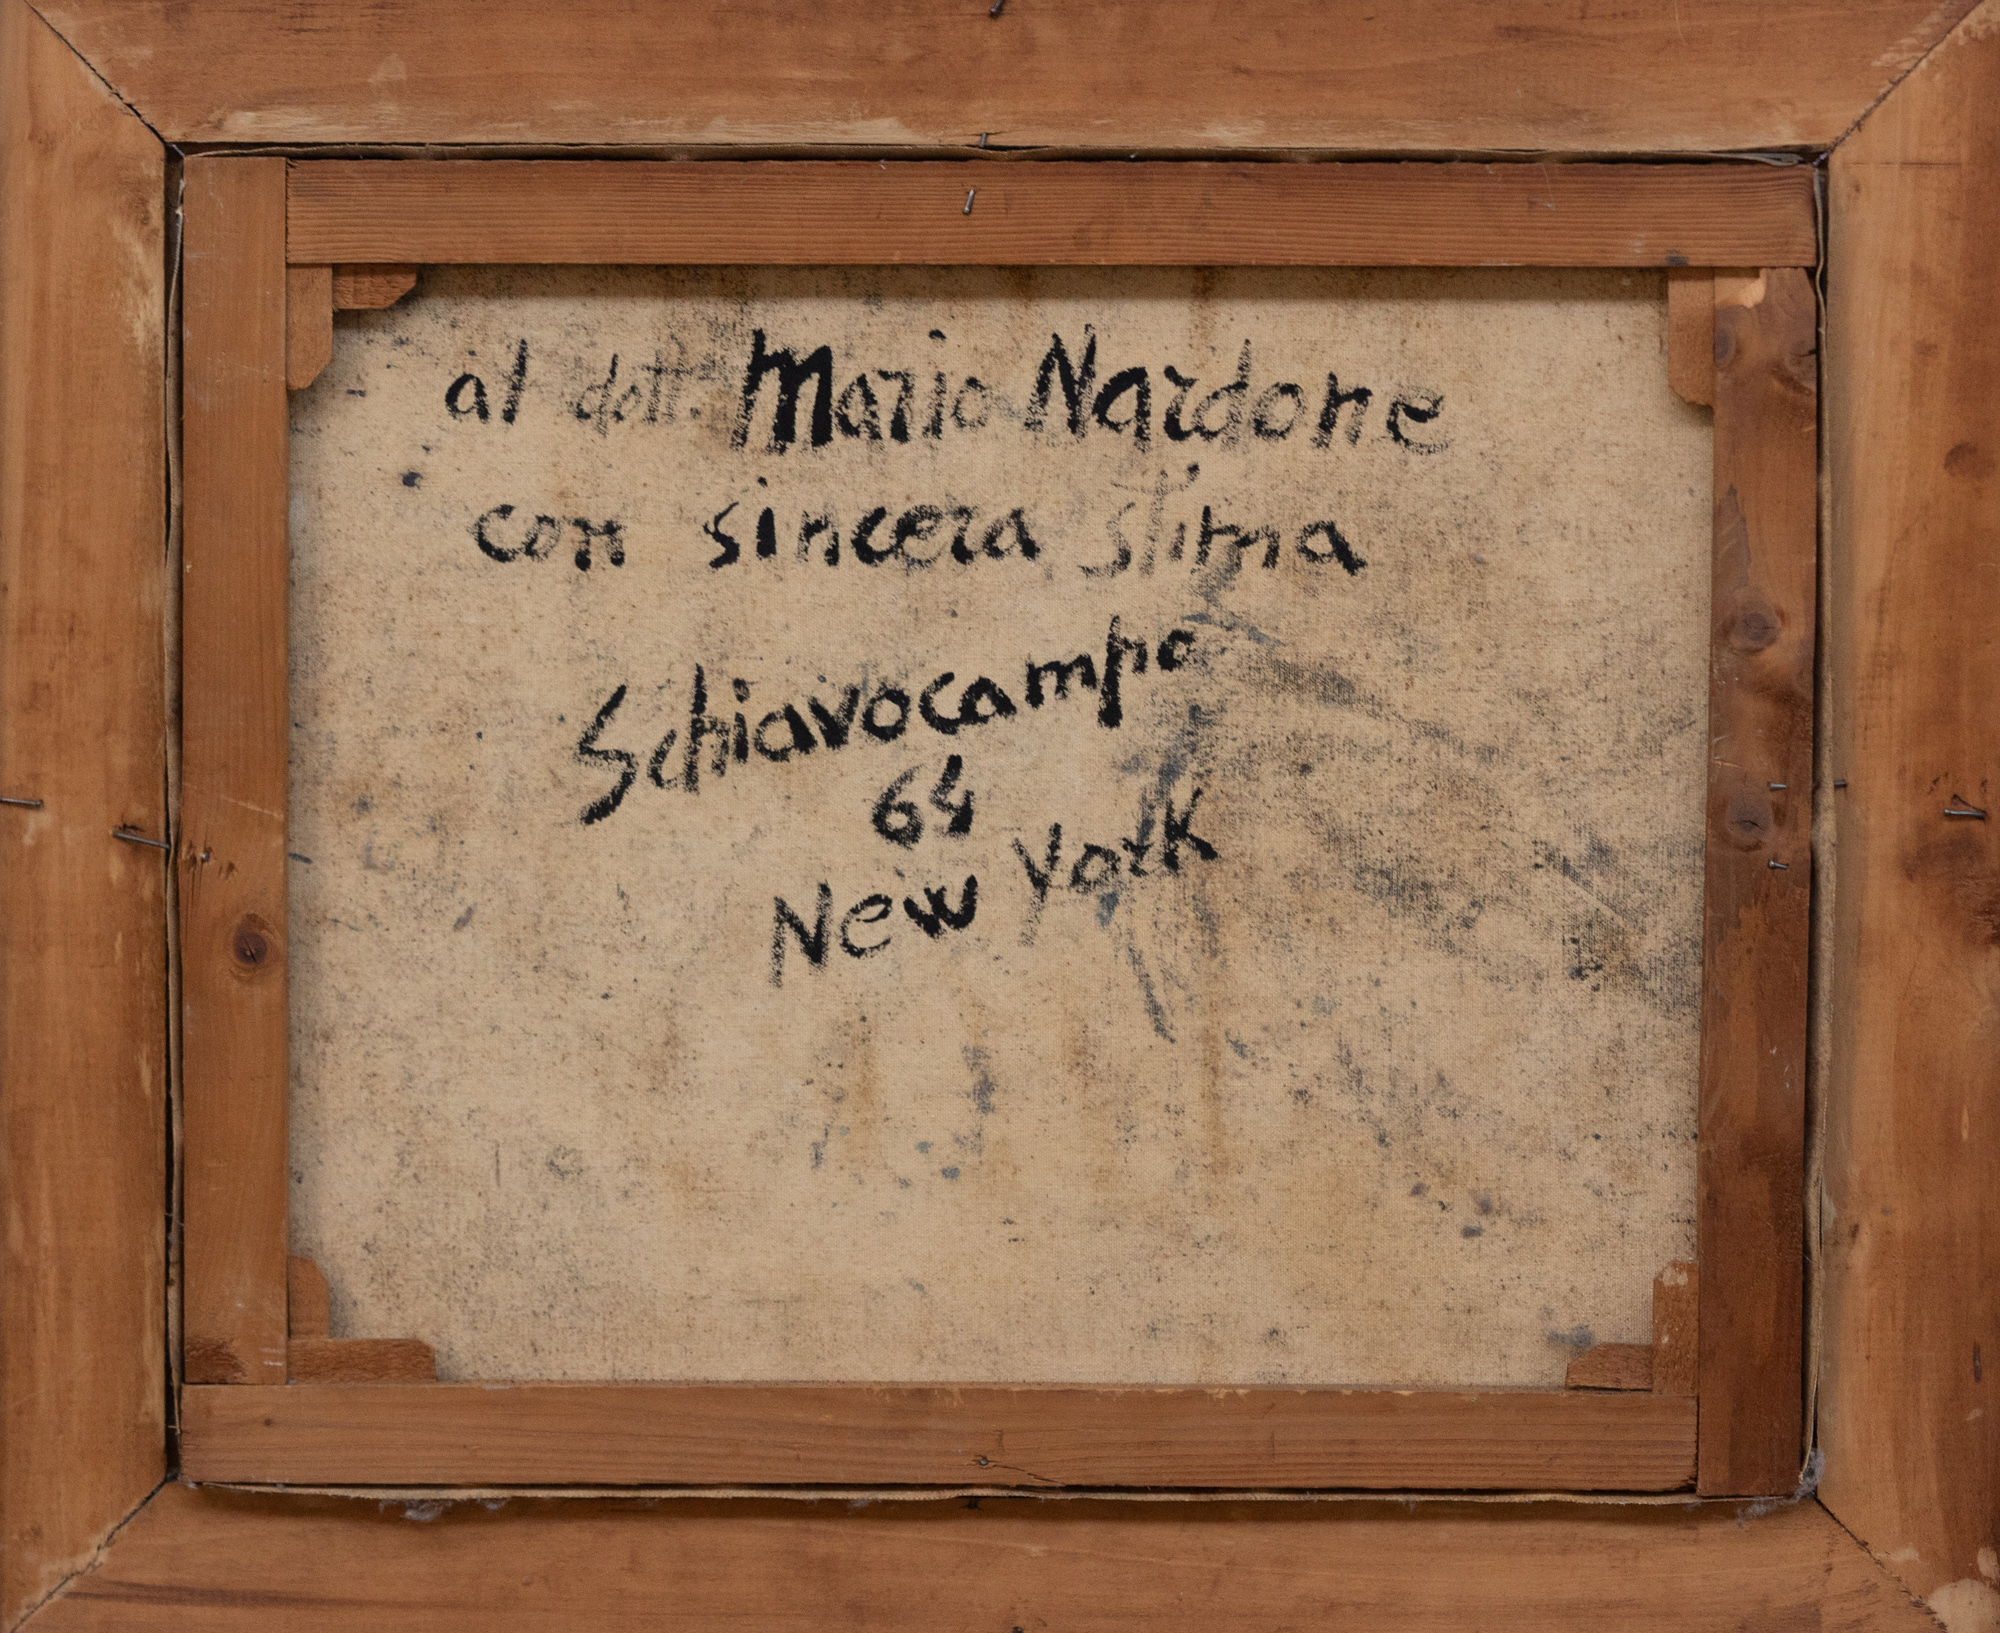 al dott. Mario Nardone
con sincera stima
Schiavocampo
64
New York